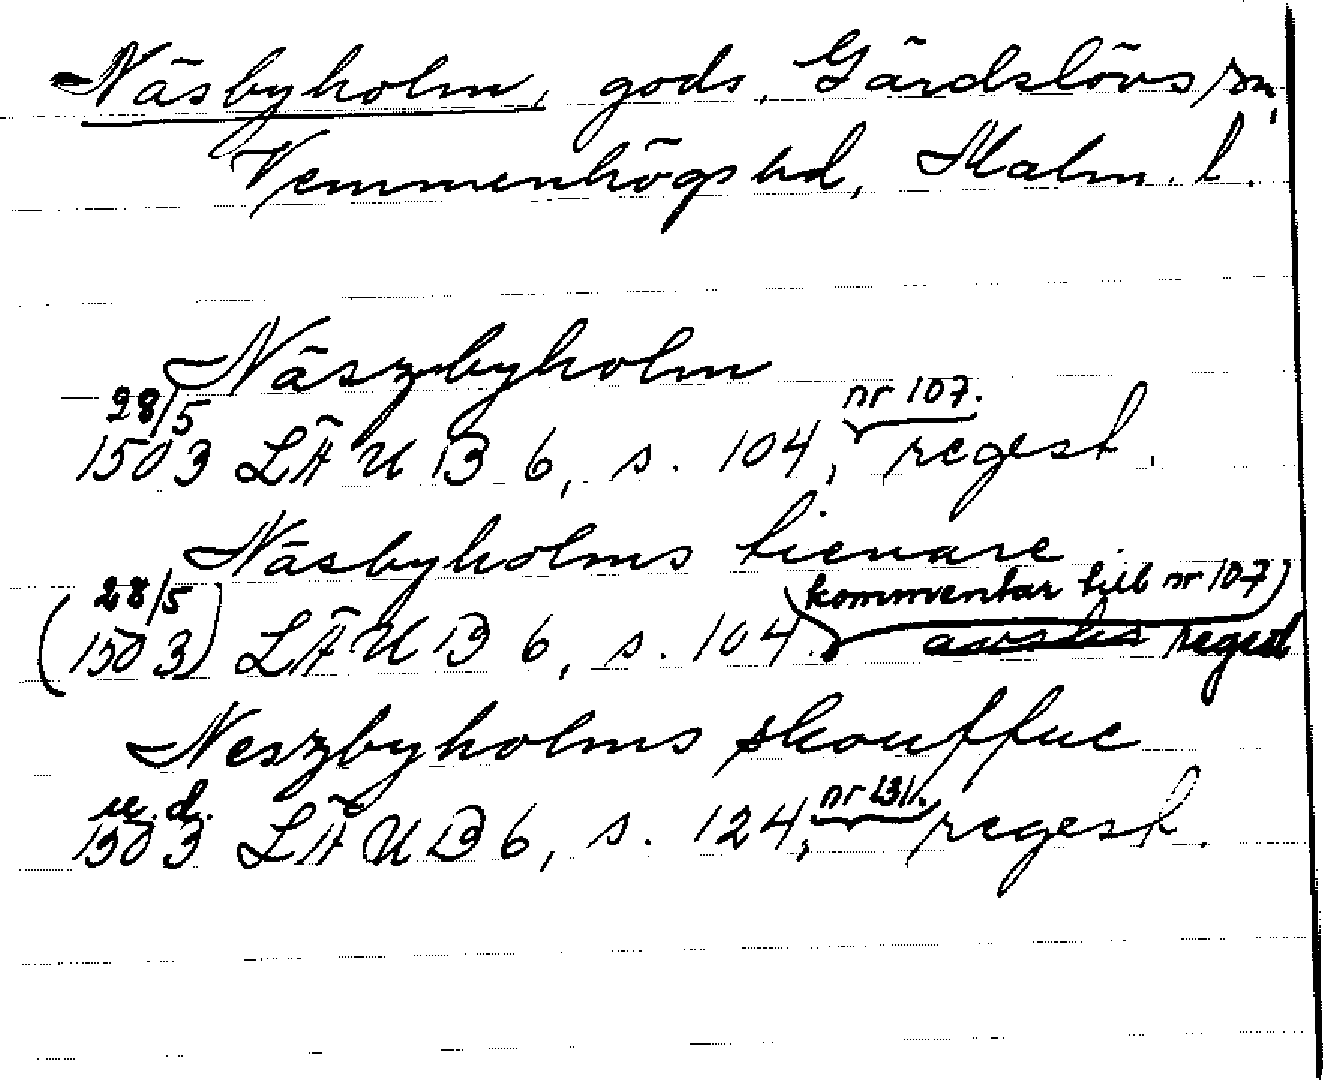 Näsbyholm, gods, Gärdslövs sn,
Vemmenhögs hd, Malm. l.
Näszbyholm
28/5
1503 LÄUB 6, s. 104, nr 107. regest.
Näsbyholms tienare
(28/5
1503) LÄUB 6, s. 104 (kommentar till nr 107) regest
Neszbyholms skouffue
u. d.
1503 LÄUB 6, s. 124, nr 131. regest.